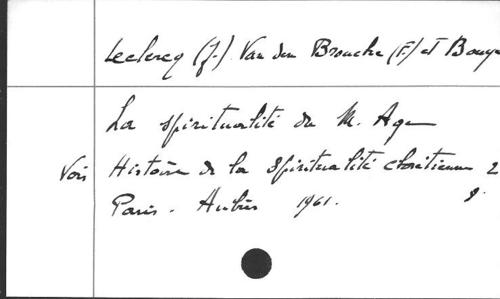 Leclercq (J.) Van den Broucke (F.) et Bouye
La spiritualité du M. Age
Voir Histoire de la Spiritualité chrétienne 2
Paris - Aubier 1961.